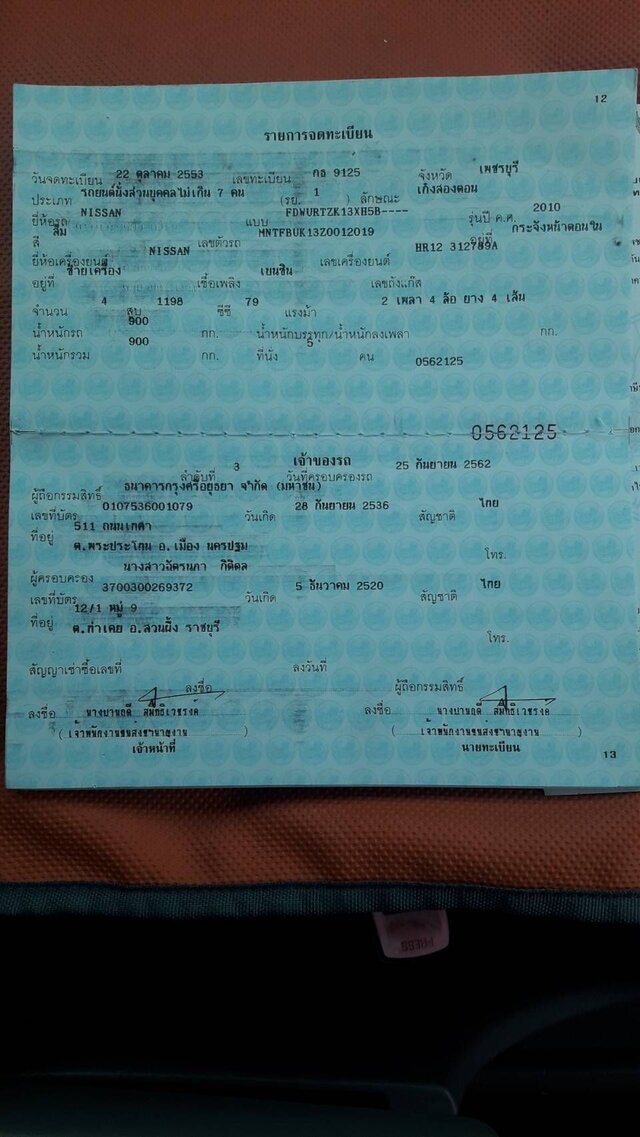 12
รายการจดทะเบียน
วันจดทะเบียน 22 ตุลาคม 2553 เลขทะเบียน กธ 9125 จังหวัด เพชรบุรี
ประเภท รถยนต์นั่งส่วนบุคคลไม่เกิน 7 คน (รย. 1 ) ลักษณะ เก๋งสองตอน
ยี่ห้อรถ NISSAN แบบ FDWURTZK13XH5B---- รุ่นปี ค.ศ. 2010
สี ส้ม เลขตัวรถ MNTFBUK13Z0012019 อยู่ที่ กระจังหน้าตอนใน
ยี่ห้อเครื่องยนต์ NISSAN เลขเครื่องยนต์ HR12 312789A
อยู่ที่ ซ้ายเครื่อง เชื้อเพลิง เบนซิน เลขถังแก๊ส
จำนวน 4 สูบ 1198 ซีซี 79 แรงม้า 2 เพลา 4 ล้อ ยาง 4 เส้น
น้ำหนักรถ 900 กก. น้ำหนักบรรทุก/น้ำหนักลงเพลา กก.
น้ำหนักรวม 900 กก. ที่นั่ง 5 คน 0562125
0562125
เจ้าของรถ
ลำดับที่ 3 วันที่ครอบครองรถ 25 กันยายน 2562
ผู้ถือกรรมสิทธิ์ ธนาคารกรุงศรีอยุธยา จำกัด (มหาชน)
เลขที่บัตร 0107536001079 วันเกิด 28 กันยายน 2536 สัญชาติ ไทย
ที่อยู่ 511 ถนนเทศา
ต.พระประโทน อ.เมือง นครปฐม โทร.
ผู้ครอบครอง นางสาวฉัตรนภา กิติดล
เลขที่บัตร 3700300269372 วันเกิด 5 ธันวาคม 2520 สัญชาติ ไทย
ที่อยู่ 12/1 หมู่ 9
ต.ท่าเคย อ.สวนผึ้ง ราชบุรี โทร.
สัญญาเช่าซื้อเลขที่ ลงวันที่
ลงชื่อ ผู้ถือกรรมสิทธิ์
ลงชื่อ ลงชื่อ
( เจ้าพนักงานขนส่งชำนาญงาน ) ( เจ้าพนักงานขนส่งชำนาญงาน )
เจ้าหน้าที่ นายทะเบียน
13
PRESS